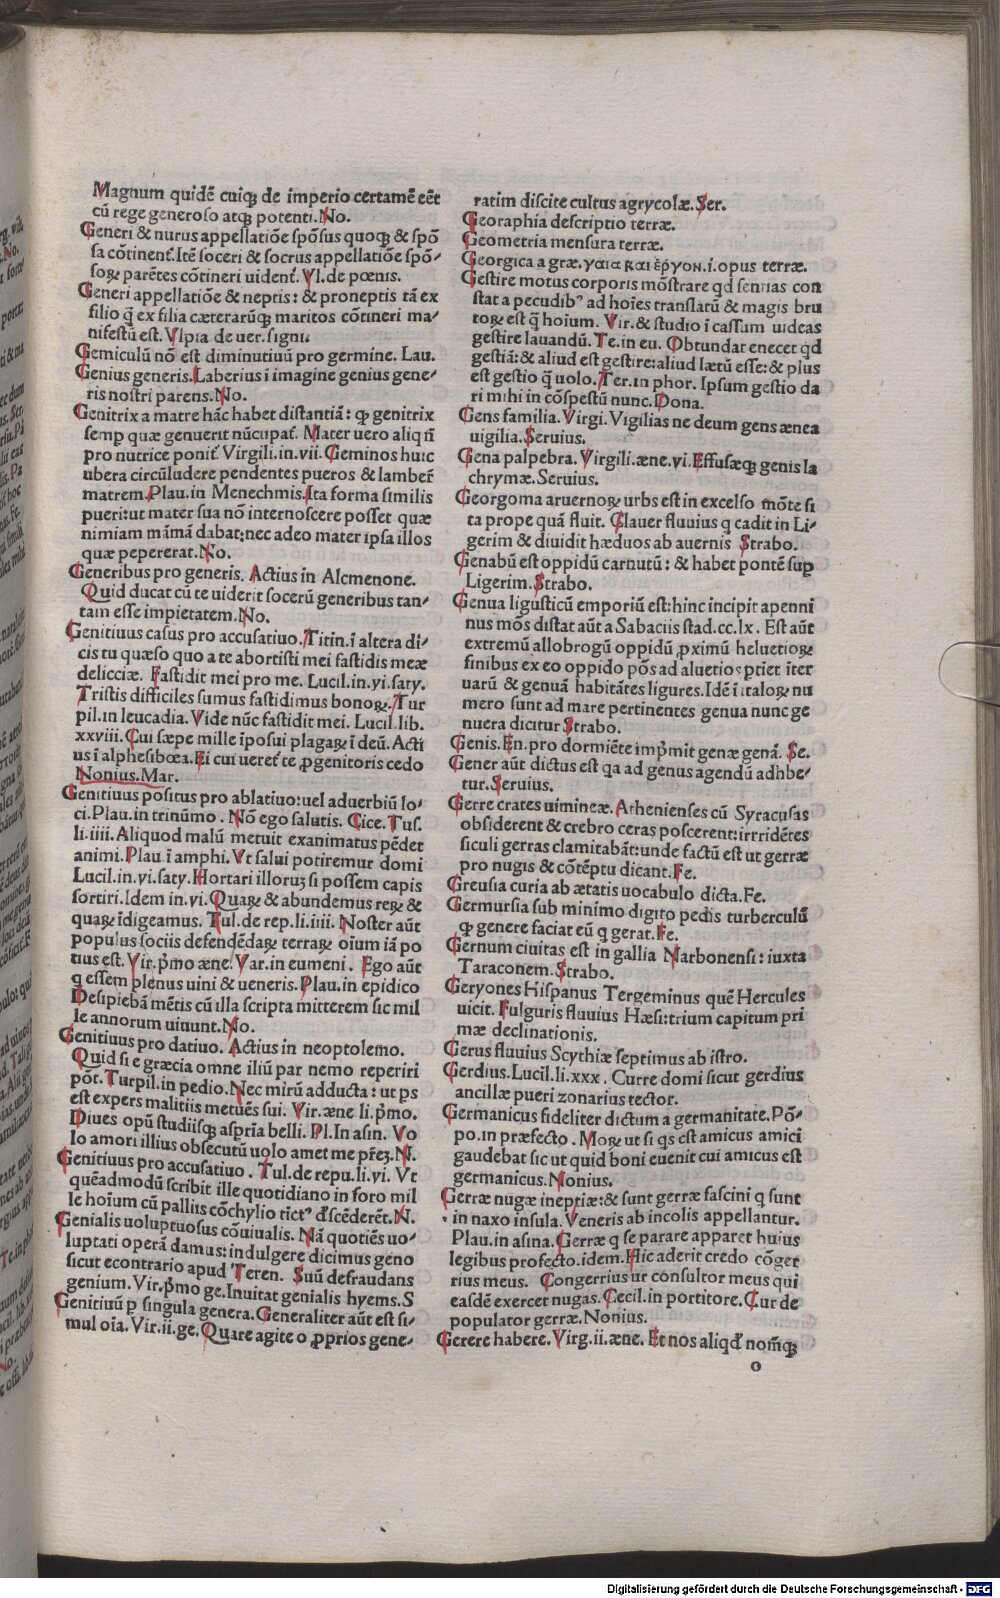 Magnum quidē cuiqȝ de imperio certamē eēt
cū rege generoſo atqȝ potenti. No.
Generi & nurus appellatiōe ſpōſus quoqȝ & ſpō
ſa cōtinent᷑. Itē ſoceri & ſocrus appellatiōe ſpō⸗
ſoꝝ parētes cōtineri uident᷑. Vl. de pœnis.
Generi appellatiōe & neptis: & proneptis tā ex
filio q̄ ex filia cæterarūqȝ maritos cōtineri ma⸗
nifeſtū eſt. Vlpia de uer. ſigni.
Gemiculū nō eſt diminutiuū pro germine. Lau.
Genius generis. Laberius ī imagine genius gene⸗
ris noſtri parens. No.
Genitrix a matre hāc habet diſtantiā: ꝙ genitrix
ſemp quæ genuerit nūcupat᷑. Mater uero aliqn̄
pro nutrice ponit᷑ Virgili. in. vii. Geminos huic
ubera circūludere pendentes pueros & lamber᷑
matrem. Plau. in Menechmis. Ita forma ſimilis
pueri: ut mater ſua nō internoſcere poſſet quæ
nimiam māmā dabat: nec adeo mater ipſa illos
quæ pepererat. No.
Generibus pro generis. Actius in Alcmenone.
Quid ducat cū te uiderit ſocerū generibus tan⸗
tam eſſe impietatem. No.
Genitiuus caſus pro accuſatiuo. Titin. ī altera di⸗
cis tu quæſo quo a te abortiſti mei faſtidis meæ
delicciæ. Faſtidit mei pro me. Lucil. in. vi. ſaty.
Triſtis difficiles ſumus faſtidimus bonoꝝ. Tur
pil. in leucadia. Vide nūc faſtidit mei. Lucil. lib.
xxviii. Cui ſæpe mille īpoſui plagaꝝ ī deū. Acti
us ī alpheſibœa. Ei cui ueret᷑ te ꝓgenitoris cedo
Nonius. Mar.
Genitiuus poſitus pro ablatiuo: uel aduerbiū lo⸗
ci. Plau. in trinūmo. Nō ego ſalutis. Cice. Tuſ.
li. iiii. Aliquod malū metuit exanimatus pēdet
animi. Plau. ī amphi. Vt ſalui potiremur domi
Lucil. in. vi. ſaty. Hortari illoruȝ ſi poſſem capis
fortiri. Idem in. vi. Quaꝝ & abundemus reꝝ &
quaꝝ īdigeamus. Tul. de rep. li. iiii. Noſter aūt
populus ſociis defendēdaꝝ terraꝝ oīum iā po
tius eſt. Vir. p̄mo æne. Var. in eumeni. Ego aūt
q eſſem plenus uini & ueneris. Plau. in epidico
Deſipiebā mētis cū illa ſcripta mitterem ſic mil
le annorum uiuunt. No.
Genitiuus pro datiuo. Actius in neoptolemo.
Quid ſi e græcia omne iliū par nemo reperiri
pōt. Turpil. in pedio. Nec mirū adducta: ut ps
eſt expers malitiis metuēs ſui. Vir. æne li. p̄mo.
Diues opū ſtudiiſqȝ aſpria belli. Pl. In aſin. Vo
lo amori illius obſecutū uolo amet me pr̄eȝ. N.
Genitiuus pro accuſatiuo. Tul. de repu. li. vi. Vt
quēadmodū ſcribit ille quotidiano in foro mil
le hoīum cū palliis cōchylio tict᷒ d̓ſcēderēt. N.
Genialis uoluptuoſus cōuiualis. Nā quotiēs uo⸗
luptati operā damus: indulgere dicimus geno
ſicut econtrario apud Teren. Suū defraudans
genium. Vir. p̄mo ge. Inuitat genialis hyems. S
Genitiuū p ſingula genera. Generaliter aūt eſt ſi⸗
mul oīa. Vir. ii. ge. Quare agite o ꝓprios gene⸗
ratim diſcite cultus agrycolæ. Ser.
Georaphia deſcriptio terræ.
Geometria menſura terræ.
Georgica a græ. γαια και ἐργον. i. opus terræ.
Geſtire motus corporis mōſtrare qd ſentias con
ſtat a pecudib᷒ ad hoīes tranſlatū & magis bru
toꝝ eſt q̄ hoīum. Vir. & ſtudio ī caſſum uideas
geſtire lauandū. Te. in eu. Obtundat enecet qd
geſtiā: & aliud eſt geſtire: aliud lætū eſſe: & plus
eſt geſtio q̄ uolo. Ter. in phor. Ipſum geſtio da
ri mihi in cōſpeſtū nunc. Dona.
Gens familia. Virgi. Vigilias ne deum gens ænea
uigilia. Seruius.
Gena palpebra. Virgili. æne. vi. Effuſæqȝ genis la
chrymæ. Seruius.
Georgoma aruernoꝝ urbs eſt in excelſo mōte ſi
ta prope quā fluit. Clauer fluuius q cadit in Li⸗
gerim & diuidit hæduos ab auernis Strabo.
Genabū eſt oppidū carnutū: & habet pontē ſup
Ligerim. Strabo.
Genua liguſticū emporiū eſt: hinc incipit apenni
nus mōs diſtat aūt a Sabaciis ſtad. cc. lx. Eſt aūt
extremū allobrogū oppidū ꝓximū heluetioꝝ
finibus ex eo oppido pōs ad aluetios ptiet īter
uarū & genuā habitātes ligures. Idē ī italoꝝ nu
mero ſunt ad mare pertinentes genua nunc ge
nuera dicitur Strabo.
Genis. En. pro dormiēte imp̄mit genæ genā. Se.
Gener aūt dictus eſt qa ad genus agendū adhbe⸗
tur. Seruius.
Gerre crates uimineæ. Athenienſes cū Syracuſas
obſiderent & crebro ceras poſcerent: irrridētes
ſiculi gerras clamitabāt: unde factū eſt ut gerræ
pro nugis & cōtēptu dicant. Fe.
Greuſia curia ab ætatis uocabulo dicta. Fe.
Germurſia ſub minimo digito pedis turberculū
ꝙ genere faciat eū q gerat. Fe.
Gernum ciuitas eſt in gallia Narbonenſi: iuxta
Taraconem. Strabo.
Geryones Hiſpanus Tergeminus quē Hercules
uicit. Fulguris fluuius Hæſi: trium capitum pri
mæ declinationis.
Gerus fluuius Scythiæ ſeptimus ab iſtro.
Gerdius. Lucil. li. xxx. Curre domi ſicut gerdius
ancillæ pueri zonarius tector.
Germanicus fideliter dictum a germanitate. Pō⸗
po. in præfecto. Moꝝ ut ſi qs eſt amicus amici
gaudebat ſic ut quid boni euenit cui amicus eſt
germanicus. Nonius.
Gerræ nugæ ineptiæ: & ſunt gerræ faſcini q ſunt
in naxo inſula. Veneris ab incolis appellantur.
Plau. in aſina. Gerræ q ſe parare apparet huius
legibus profecto. idem. Hic aderit credo cōger
rius meus. Congerrius ut conſultor meus qui
eaſdē exercet nugas. Cecil. in portitore. Cur de
populator gerræ. Nonius.
Gerere habere. Virg. ii. æne. Et nos aliqd̓ nom̄qȝ
o
Digitalisierung gefördert durch die Deutsche Forschungsgemeinschaft - DFG